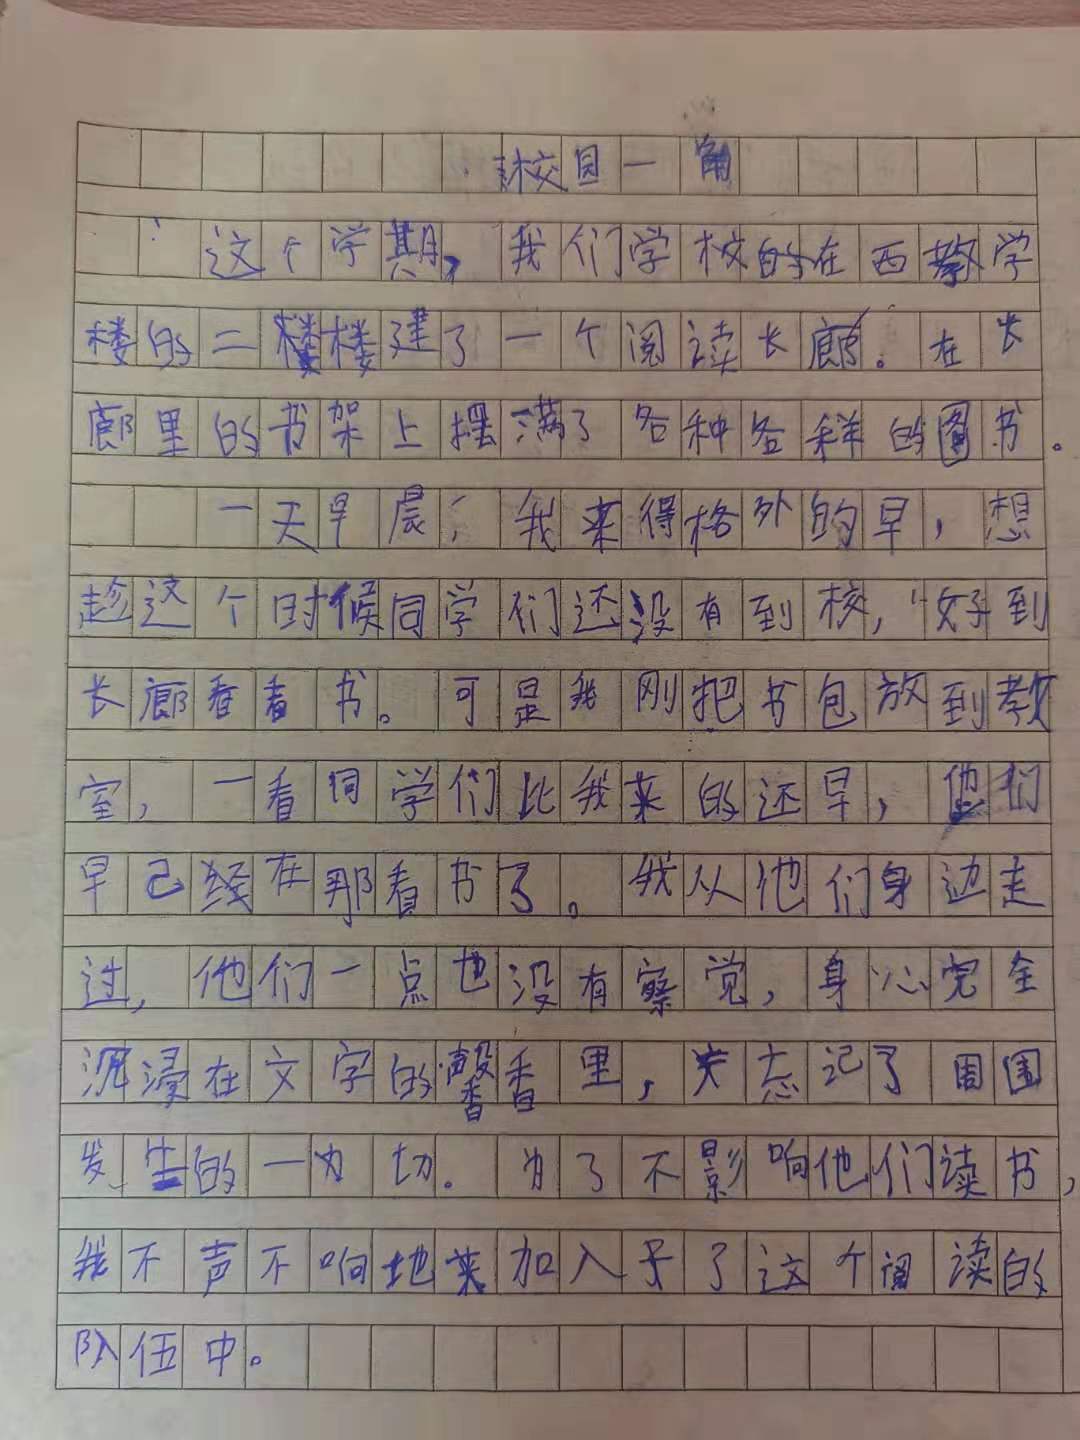 校园一角
这个学期，我们学校的在西教学
楼的二楼楼建了一个阅读长廊。在长
廊里的书架上摆满了各种各样的图书。
一天早晨，我来得格外的早，想
趁这个时候同学们还没有到校，好到
长廊看看书。可是我刚把书包放到教
室，一看同学们比我来的还早，他们
早已经在那看书了。我从他们身边走
过，他们一点也没有察觉，身心完全
沉浸在文字的馨香里，忘记了周围
发生的一切。为了不影响他们读书，
我不声不响地来加入了这个阅读的
队伍中。